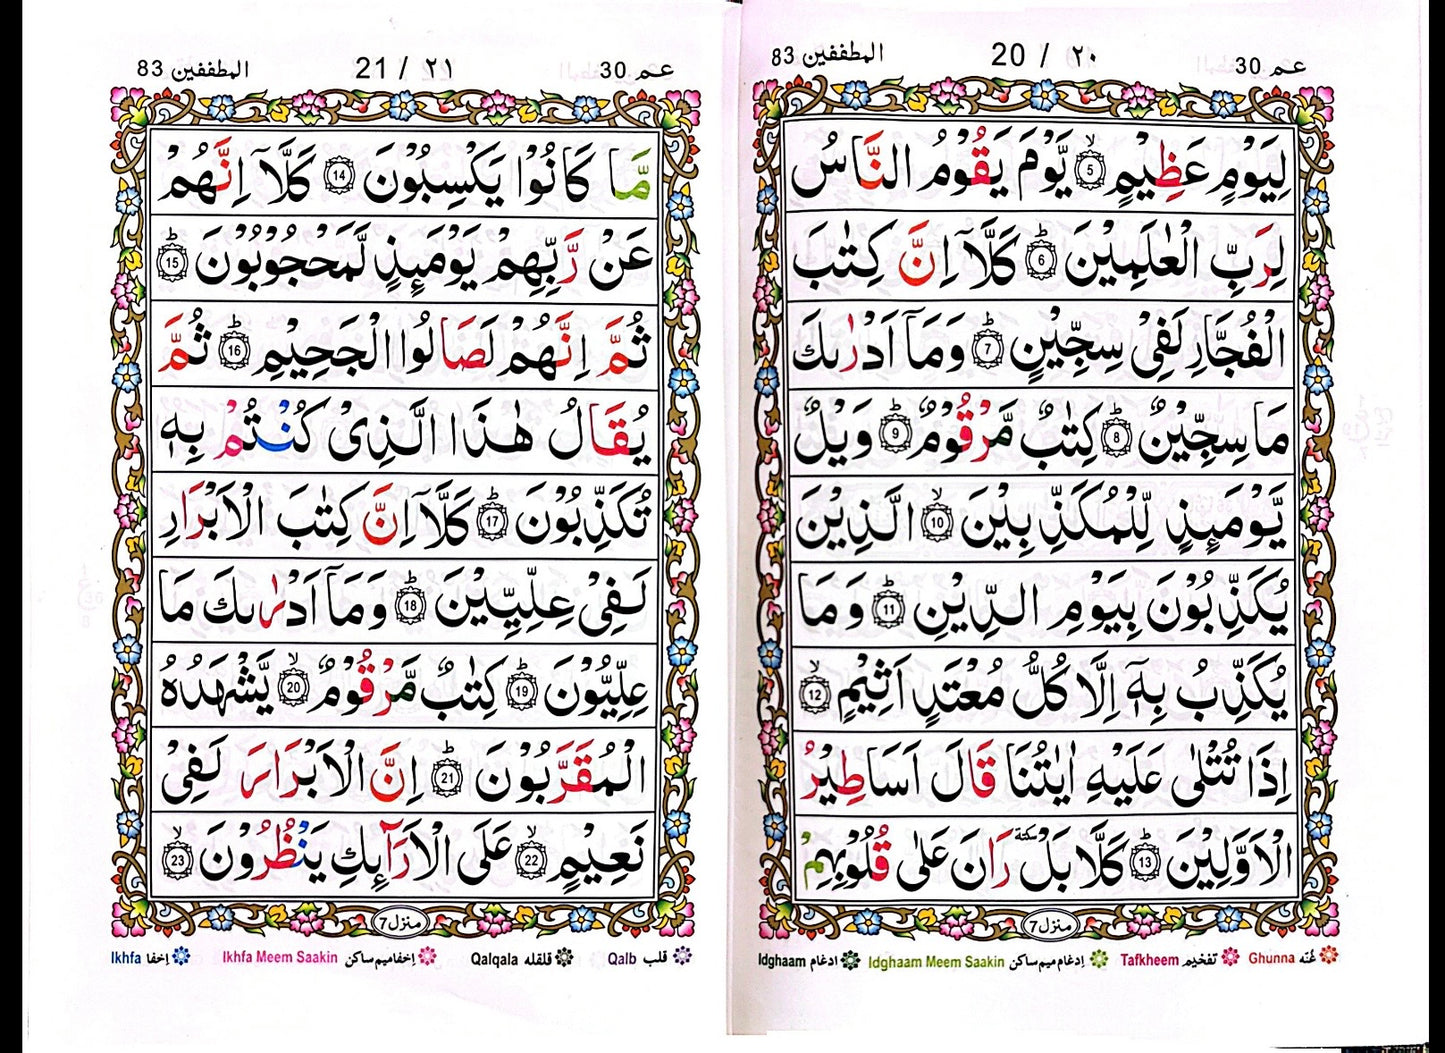 عـم 30
20 / ٢٠
المطففين 83
لِيَوْمٍ عَظِيْمٍ ۙ 5 يَّوْمَ يَقُوْمُ النَّاسُ
لِرَبِّ الْعٰلَمِيْنَ ؕ 6 كَلَّاۤ اِنَّ كِتٰبَ
الْفُجَّارِ لَفِيْ سِجِّيْنٍ ؕ 7 وَمَاۤ اَدْرٰىكَ
مَا سِجِّيْنٌ ؕ 8 كِتٰبٌ مَّرْقُوْمٌ ؕ 9 وَيْلٌ
يَّوْمَىِٕذٍ لِّلْمُكَذِّبِيْنَ ۙ 10 الَّذِيْنَ
يُكَذِّبُوْنَ بِيَوْمِ الدِّيْنِ ؕ 11 وَمَا
يُكَذِّبُ بِهٖۤ اِلَّا كُلُّ مُعْتَدٍ اَثِيْمٍ ۙ 12
اِذَا تُتْلٰى عَلَيْهِ اٰيٰتُنَا قَالَ اَسَاطِيْرُ
الْاَوَّلِيْنَ ؕ 13 كَلَّا بَلْ سكتة رَانَ عَلٰى قُلُوْبِهِمْ
منزل 7
Ghunna غُنّه Tafkheem تفخيم Idghaam Meem Saakin إدغام ميم ساكن Idghaam ادغام
عـم 30
21 / ٢١
المطففين 83
مَّا كَانُوْا يَكْسِبُوْنَ 14 كَلَّاۤ اِنَّهُمْ
عَنْ رَّبِّهِمْ يَوْمَىِٕذٍ لَّمَحْجُوْبُوْنَ ؕ 15
ثُمَّ اِنَّهُمْ لَصَالُوا الْجَحِيْمِ ؕ 16 ثُمَّ
يُقَالُ هٰذَا الَّذِىْ كُنْتُمْ بِهٖ
تُكَذِّبُوْنَ ؕ 17 كَلَّاۤ اِنَّ كِتٰبَ الْاَبْرَارِ
لَفِيْ عِلِّيِّيْنَ ؕ 18 وَمَاۤ اَدْرٰىكَ مَا
عِلِّيُّوْنَ ؕ 19 كِتٰبٌ مَّرْقُوْمٌ ۙ 20 يَّشْهَدُهُ
الْمُقَرَّبُوْنَ ؕ 21 اِنَّ الْاَبْرَارَ لَفِيْ
نَعِيْمٍ ۙ 22 عَلَى الْاَرَآىِٕكِ يَنْظُرُوْنَ ۙ 23
منزل 7
Qalb قلب Qalqala قلقله Ikhfa Meem Saakin إخفا ميم ساكن Ikhfa إخفا